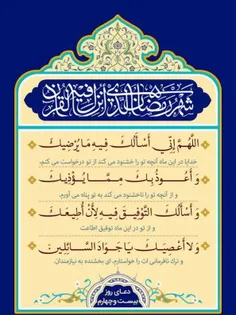 شهر رمضان الذي انزل فيه القرآن
اللَّهُمَّ إِنِّي أَسْأَلُكَ فِيهِ مَا يُرْضِيكَ
خدایا در این ماه آنچه تو را خشنود می کند از تو درخواست می کنم،
وَ أَعُوذُ بِكَ مِمَّا يُؤْذِيكَ
و از آنچه تو را ناخشنود می کند به تو پناه می آورم.
وَ أَسْأَلُكَ التَّوْفِيقَ فِيهِ لِأَنْ أُطِيعَكَ
و از تو در این ماه توفیق اطاعت
وَ لَا أَعْصِيَكَ يَا جَوَادَ السَّائِلِينَ
و ترك نافرمانی ات را خواستارم، ای بخشنده به نیازمندان.
دعای روز
بیست و چهارم